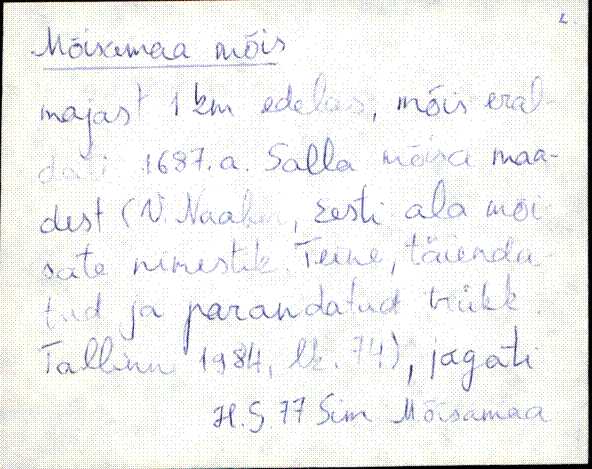 2.
Mõisamaa mõis
majast 1 km edelas, mõis eral-
dati 1687. a. Salla mõisa maa-
dest (V. Naaber, Eesti ala mõi-
sate nimestik. Teine, täienda-
tud ja parandatud trükk.
Tallinn 1984, lk. 74), jagati
77 Sim Mõisamaa